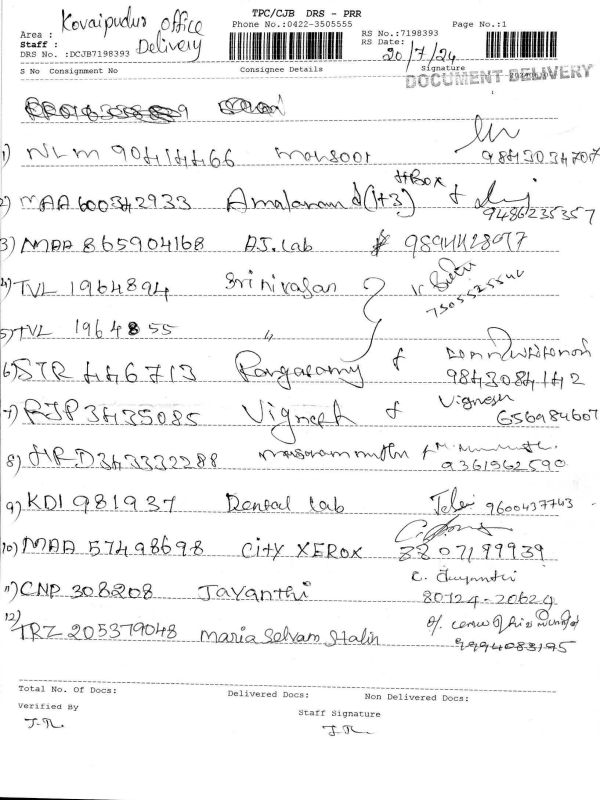 TPC/CJB DRS - PRR
Kovaipudur office
Phone No.:0422-3505555
Page No.:1
Area :
RS No.:7198393
Staff :
Delivery
RS Date:
20/7/24
DRS No. :DCJB7198393
Signature
DOCUMENT DELIVERY
S No Consignment No
Consignee Details
1) NLM 90414466 mansoor
9843034707
2) MAA 600342933 Amalanand (1+3) +Box
9486235357
3) MAA 865904168 AJ. Lab
4) TVL 1964894 Srinivasan
7305525542
5) TVL 1964855 "
6) STR 446713 Rangasamy
9843084142
7) RJP 3435085 Vignesh
Vignesh
656984607
8) HRD 343332288
9361962590
9) KDI 981937 Dental Lab
9600437743
10) MAA 57498698 CITY XEROX
8807199939
11) CNP 308208 Jayanthi
80724-20624
12) TRZ 205379048 Maria Selvam Stalin
9994083195
Total No. Of Docs:
Delivered Docs:
Non Delivered Docs:
Verified By
Staff Signature